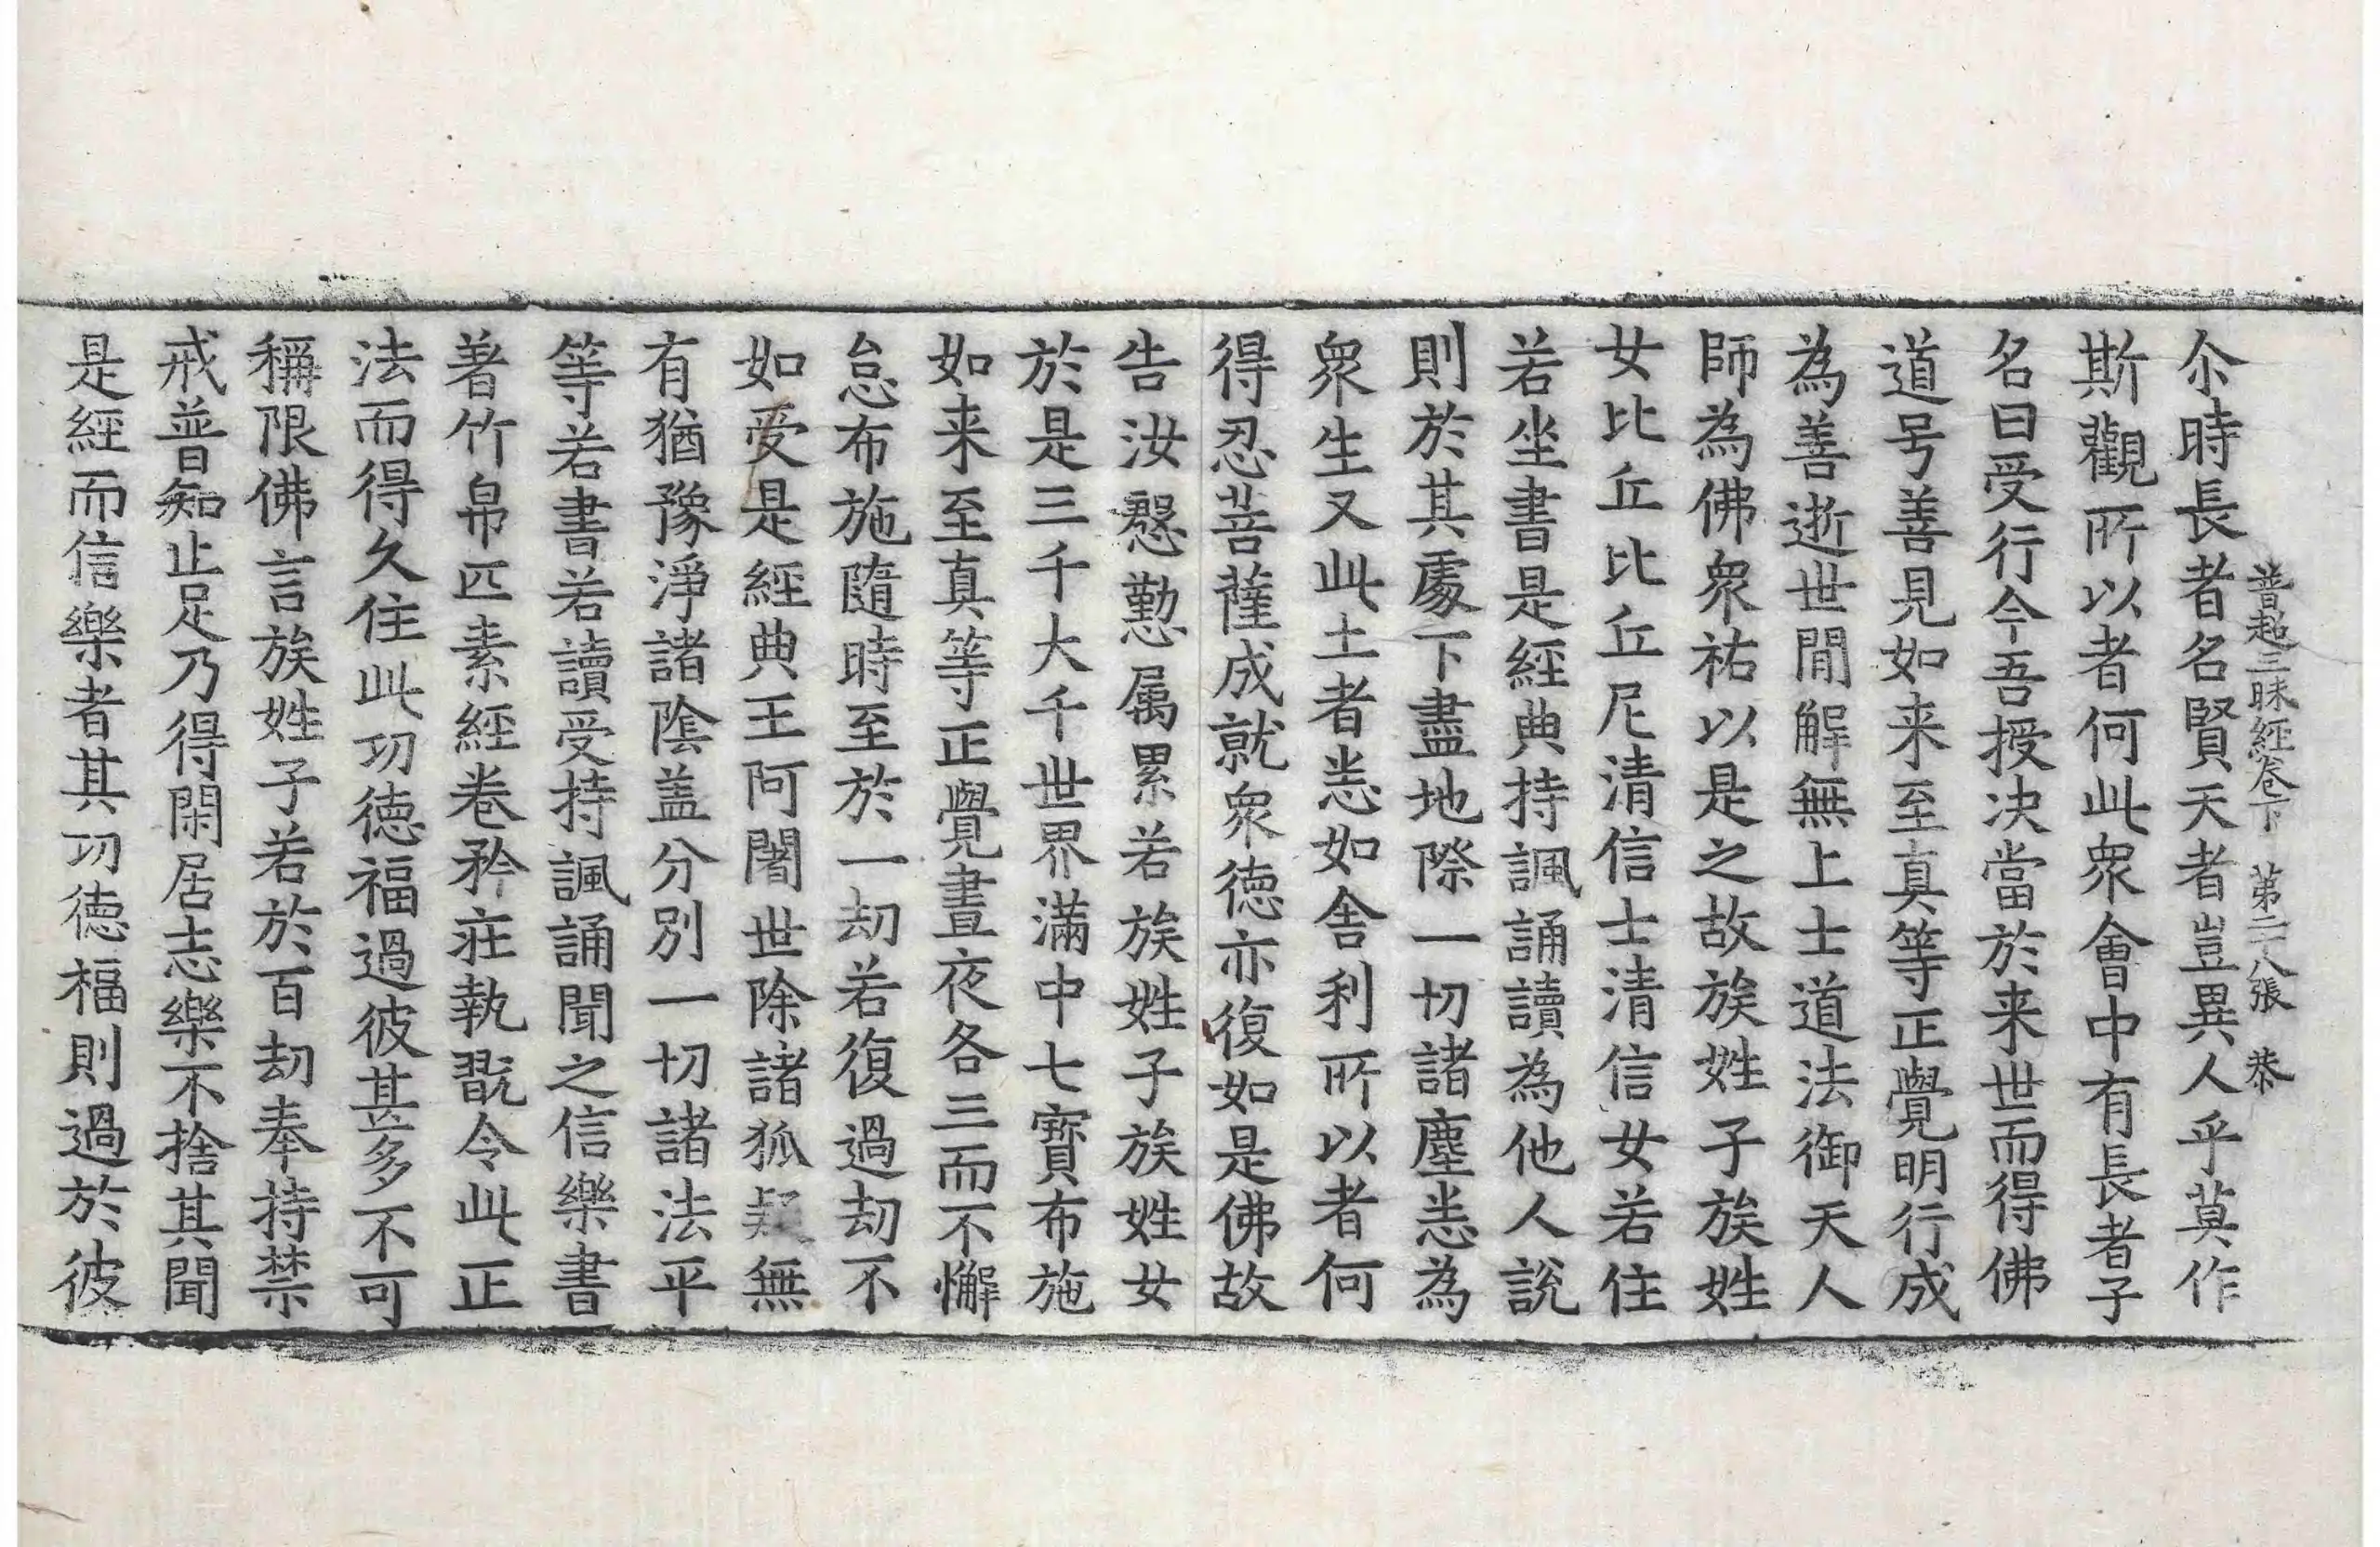 普超三昧經卷下　第二十八張　恭
尒時長者名賢天者豈異人乎莫作
斯觀所以者何此衆會中有長者子
名曰受行今吾授决當於来世而得佛
道号善見如来至真等正覺明行成
為善逝世間解無上士道法御天人
師為佛衆祐以是之故族姓子族姓
女比丘比丘尼清信士清信女若住
若坐書是經典持諷誦讀為他人說
則於其處下盡地際一切諸塵悉為
衆生又此土者悉如舍利所以者何
得忍菩薩成就衆德亦復如是佛故
告汝慇懃属累若族姓子族姓女
於是三千大千世界滿中七寳布施
如来至真等正覺晝夜各三而不懈
怠布施隨時至於一劫若復過劫不
如受是經典王阿闍世除諸狐疑無
有猶豫淨諸陰盖分別一切諸法平
等若書若讀受持諷誦聞之信樂書
著竹帛匹素經卷矜莊執翫令此正
法而得久住此功德福過彼甚多不可
稱限佛言族姓子若於百劫奉持禁
戒普知止足乃得閑居志樂不捨其聞
是經而信樂者其功德福則過於彼